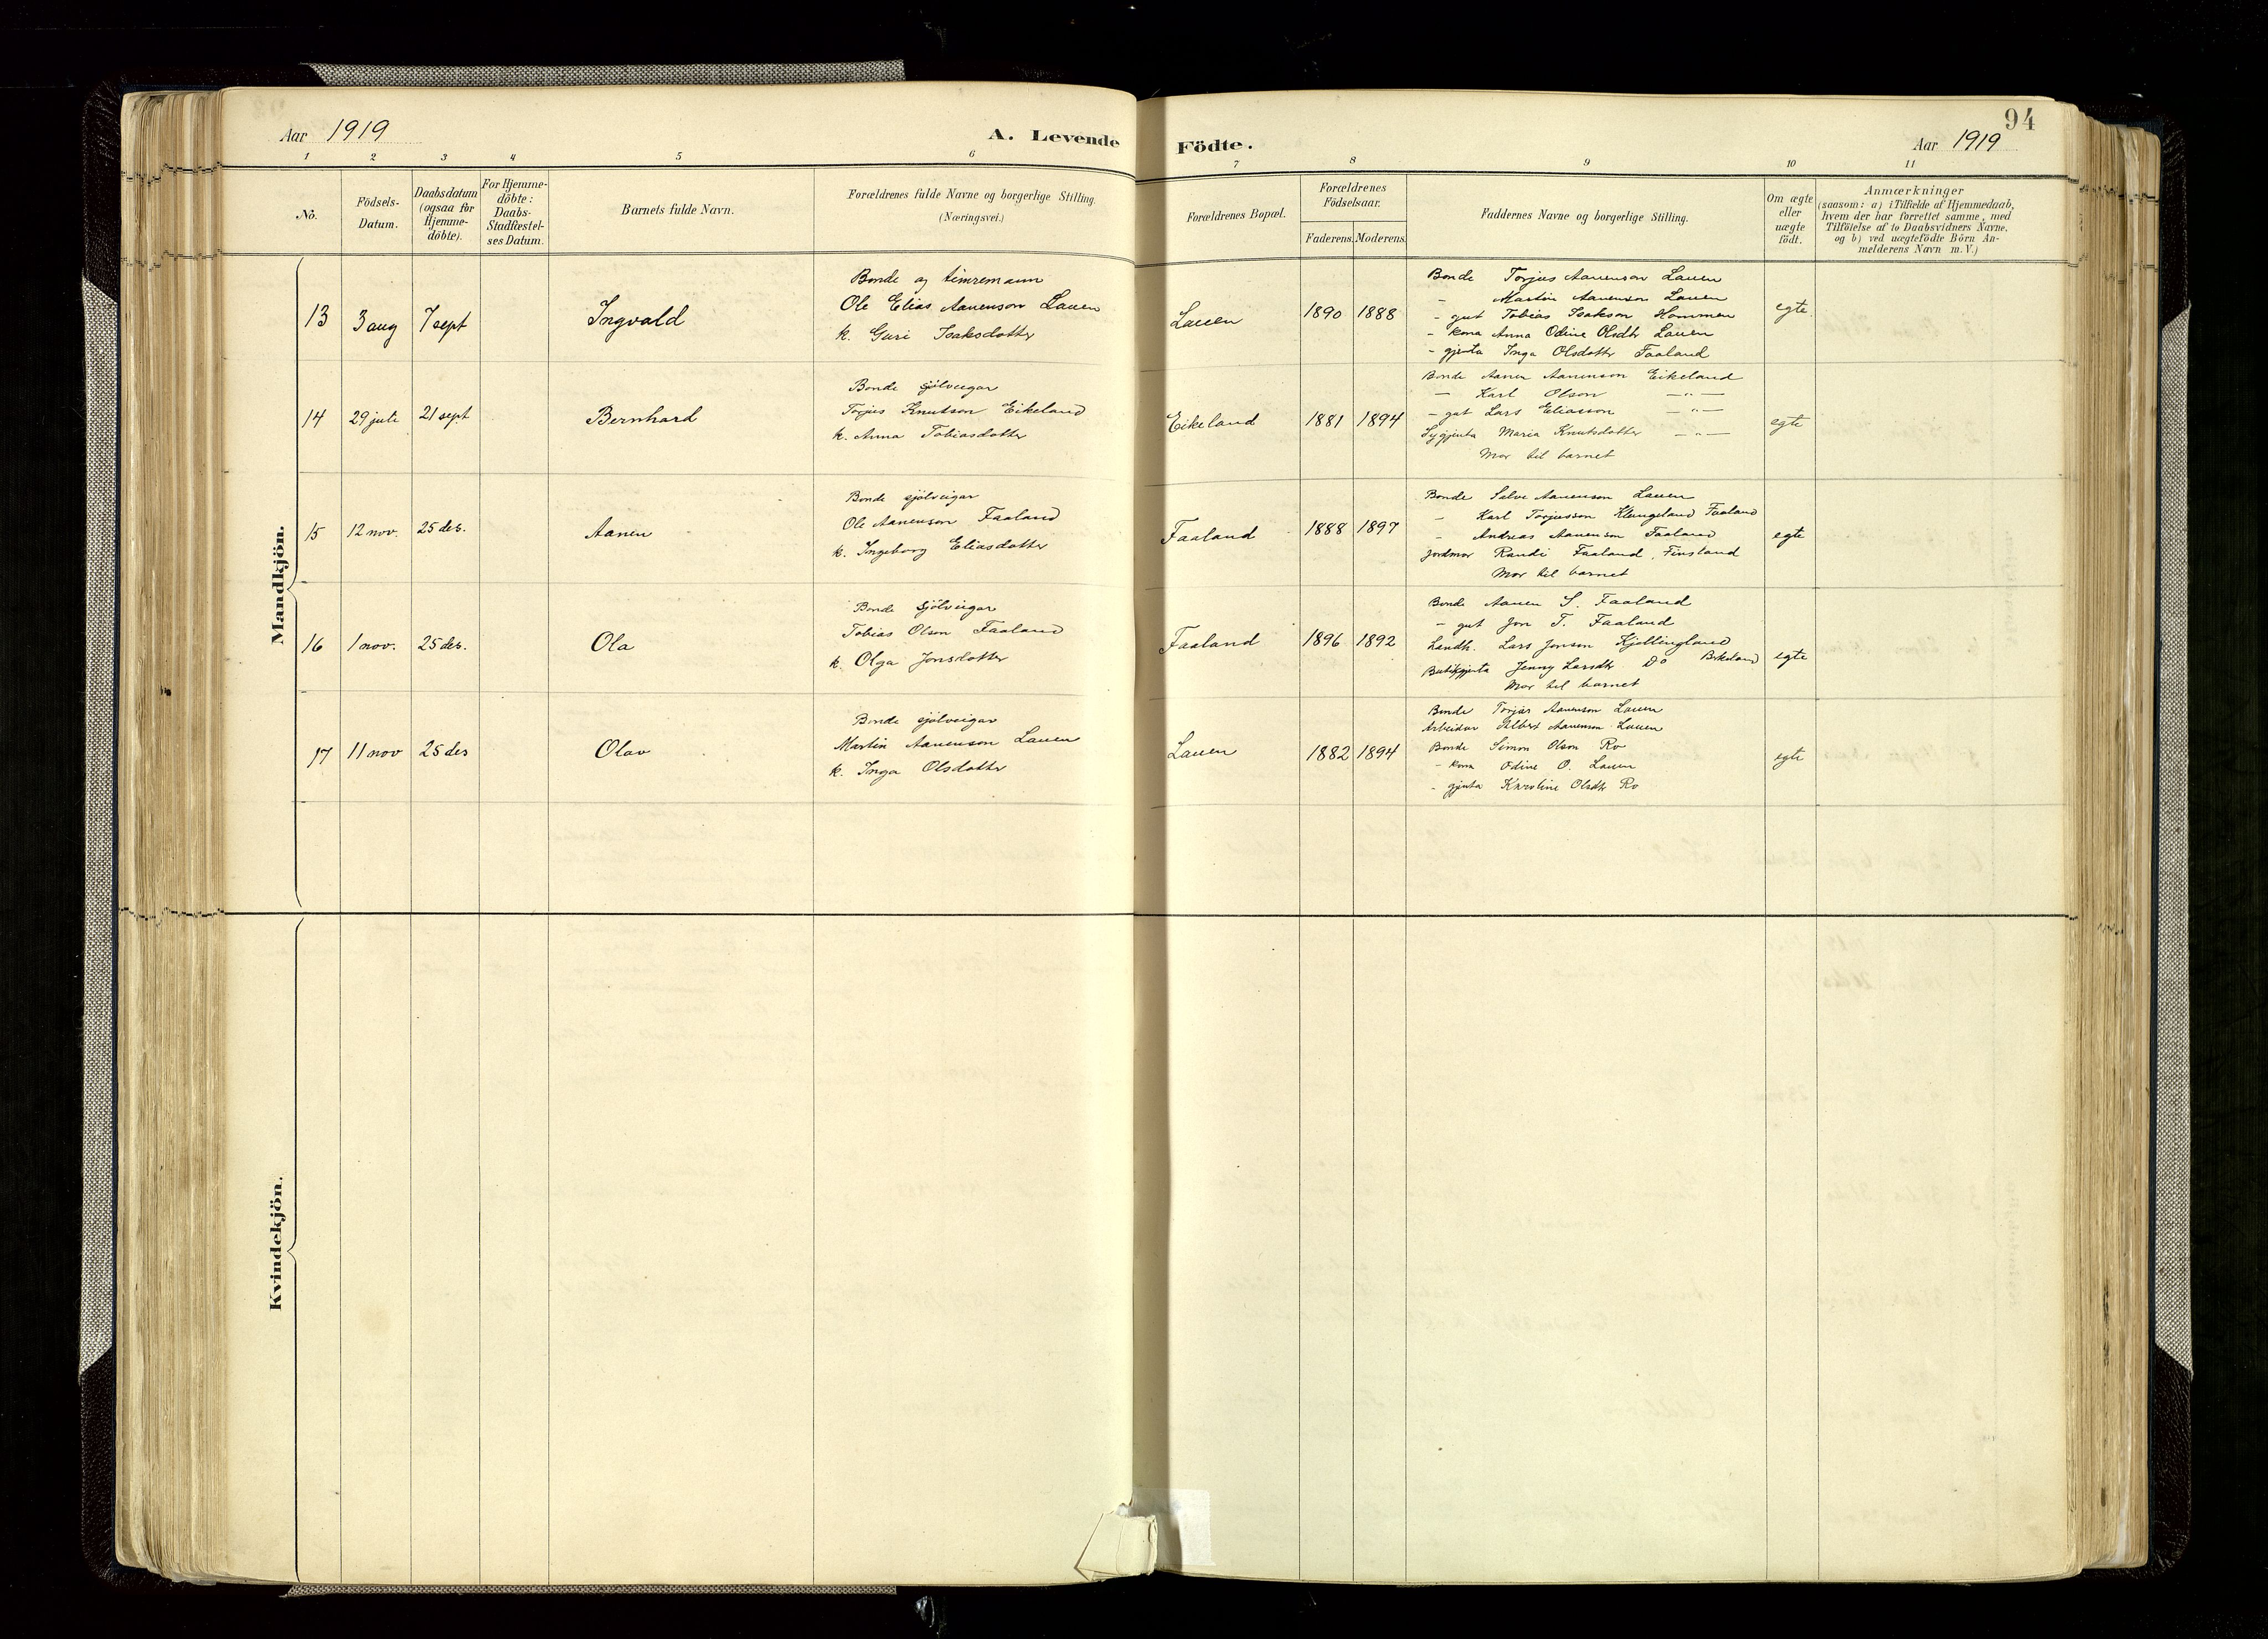 94
Aar 1919
A. Levende Födte.
Aar 1919
1 2 3 4 5 6 7 8 9 10 11
No.
Födsels-Datum.
Daabsdatum (ogsaa for Hjemme-döbte).
For Hjemme-döbte: Daabs-Stadfæstel-ses Datum.
Barnets fulde Navn.
Forældrenes fulde Navne og borgerlige Stilling.
(Næringsvei.)
Forældrenes Bopæl.
Forældrenes Födselsaar.
Faderens. Moderens.
Faddernes Navne og borgerlige Stilling.
Om ægte eller uægte födt.
Anmærkninger
(saasom: a) i Tilfælde af Hjemmedaab,
hvem der har forrettet samme, med
Tilföielse af to Daabsvidners Navne,
og b) ved uægtefödte Börn An-
melderens Navn m. V.)
Mandkjön.
13 3 aug 7 sept Ingvald
Bonde og timremann
Ole Elias Aanenson Lauen
k. Guri Isaksdotter
Lauen 1890 1888
Bonde Torjus Aanenson Lauen
- Martin Aanenson Lauen
- gut Tobias Isakson Hommen
- kona Anna Odine Olsdtr Lauen
- gjenta Inga Olsdotter Faaland
egte.
14 29 juli 21 sept Bernhard
Bonde sjölveigar
Torjus Knutson Eikeland
k. Anna Tobiasdotter
Eikeland 1881 1894
Bonde Aanen Aanenson Eikeland
— Karl Olson — " —
- gut Lars Eliasson — " —
Sygjenta Maria Knutsdotter — " —
Mor til barnet
egte
15 12 nov. 25 des. Aanen
Bonde sjölveigar
Ole Aanenson Faaland
k. Ingeborg Eliasdotter
Faaland 1888 1897
Bonde Salve Aanenson Lauen
- Karl Torjusson Klungeland Faaland
- Andreas Aanenson Faaland
Jordmor Randi Faaland, Finsland
Mor til barnet
egte
16 1 nov. 25 des. Ola
Bonde sjölveigar
Tobias Olson Faaland
k. Olga Jonsdotter
Faaland 1896 1892
Bonde Aanen S. Faaland
- gut Jon T. Faaland
Landh. Lars Jonson Kjellingland
Butikgjenta Jenny Larsdtr Do
Mor til barnet
egte
17 11 nov 25 des Olav
Bonde sjölveigar
Martin Aanenson Lauen
k. Inga Olsdotter
Lauen 1882 1894
Bonde Torjus Aanenson Lauen
Arbeidar Albert Aanenson Lauen
Bonde Simon Olson Ro
- kona Odine O. Lauen
- gjenta Karoline Olsdtr Ro
egte
Kvindekjön.